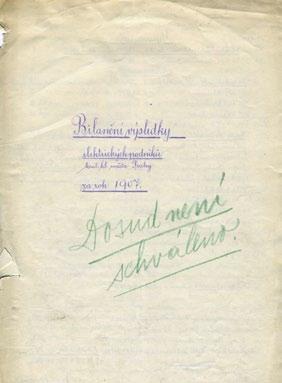 Bilanční výsledky
elektrických podniků
král. hl. města Prahy
za rok 1907.
Dosud není
schváleno.